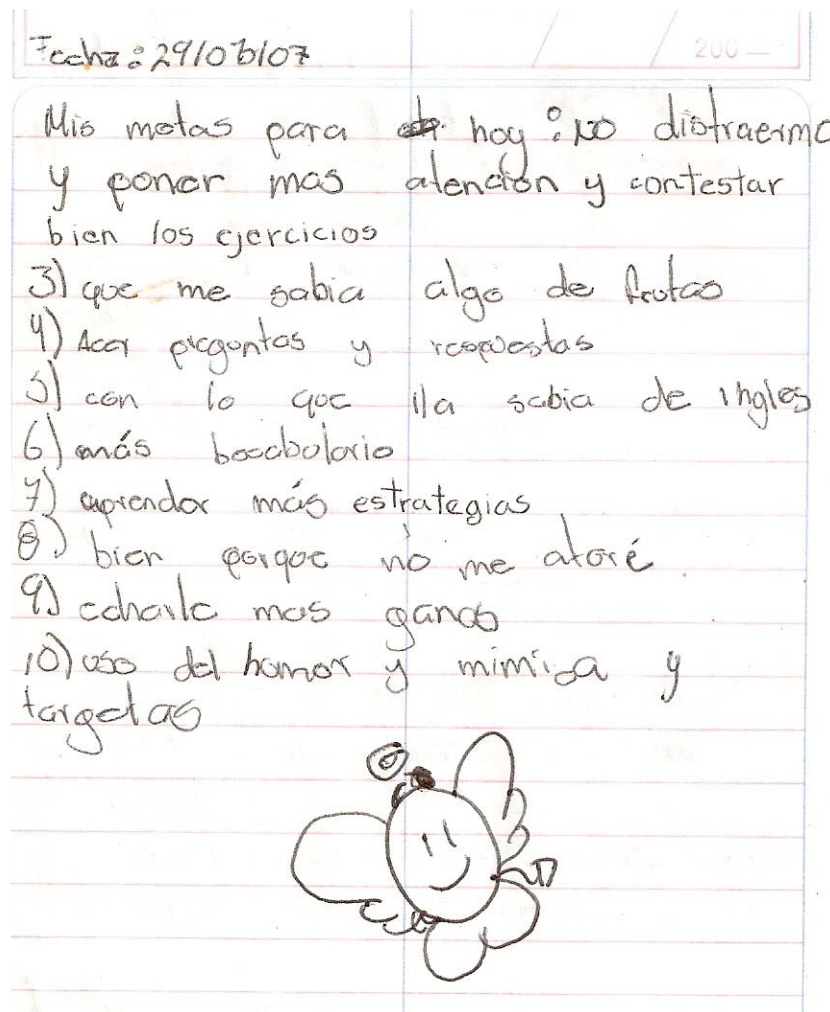 Fecha: 29/06/07
200
Mis metas para hoy: no distraerme
y poner mas atención y contestar
bien los ejercicios
3) que me sabia algo de frutas
4) Acer preguntas y respuestas
5) con lo que lla sabia de ingles
6) más bocabolario
7) aprender más estrategias
8) bien porque no me atoré.
9) echarle mas ganas
10) uso del homor y mimica y
targetas